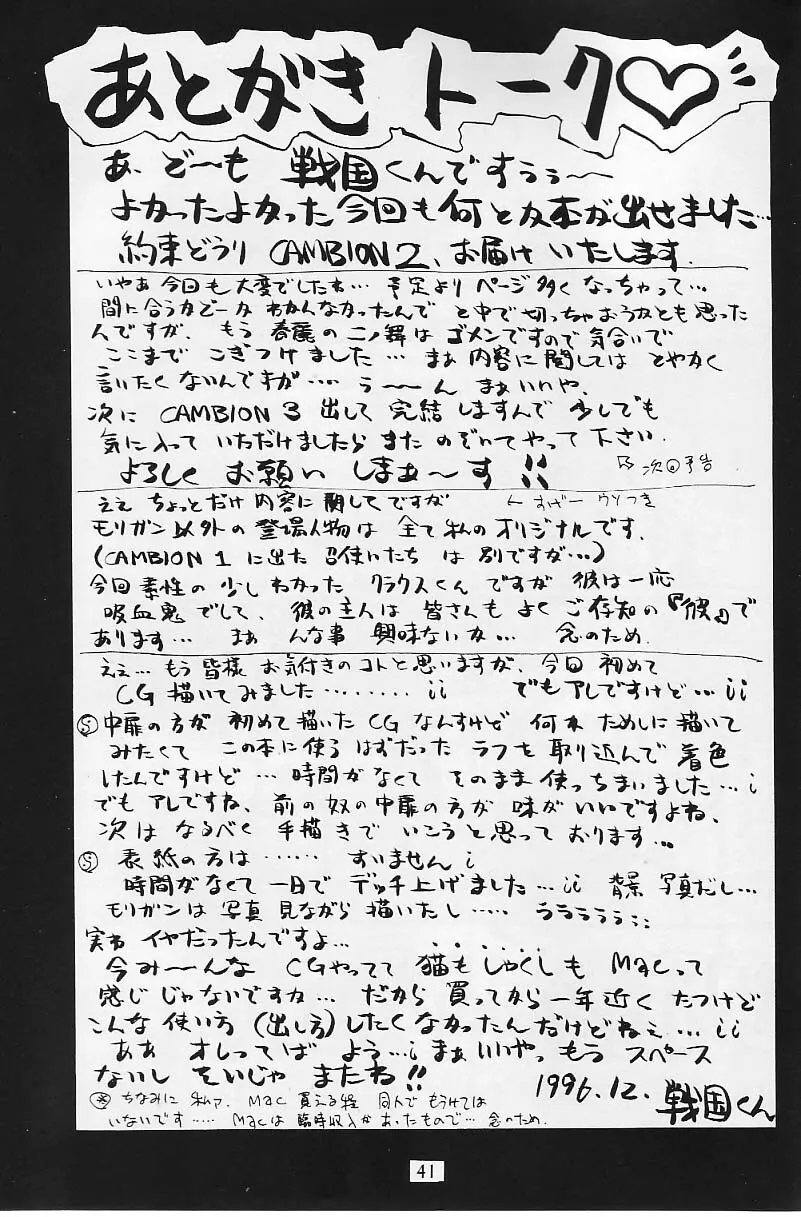 あとがきトーク♡
あ、ど〜も 戦国くんですぅぅ〜
よかったよかった今回も何とか本が出せました…
約束どうり CAMBION 2、お届けいたします.
いやあ今回も大変でしたね… 予定よりページ多くなっちゃって…
間に合うかどーかわかんなかったんで と中で切っちゃおうかとも思った
んですが、もう春麗の二ノ舞はゴメンですので気合いで
ここまで こぎつけました… まぁ内容に関しては とやかく
言いたくないんですが…. う〜〜ん まぁいいや、
次に CAMBION 3 出して 完結しますんで 少しでも
気に入っていただけましたらまた のぞいてやって下さい.
よろしく お願い しまぁ〜す!! 次回予告
ええ ちょっとだけ内容に関してですが ← すげーウソつき
モリガン以外の登場人物は 全て私のオリジナルです.
(CAMBION 1 に出た 召使いたち は別ですが…)
今回素性の少しわかった クラウスくんですが 彼は一応
吸血鬼でして、彼の主人は皆さんもよくご存知の『彼』で
あります… まぁ んな事 興味ないか… 念のため.
ええ… もう皆様お気付きのコトと思いますが、今回初めて
CG描いてみました……… ¡¡ でもアレですけど…¡¡
Ⓢ中扉の方が 初めて描いたCGなんすけど 何か ためしに描いて
みたくて この本に使うはずだった ラフを取り込んで着色
したんですけど… 時間がなくて そのまま使っちまいました…¡
でもアレですね、前の奴の中扉の方が 味がいいですよね、
次は なるべく 手描きで いこうと思っております…
Ⓢ 表紙の方は…… すいません¡
時間がなくて一日で デッチ上げました…¡¡ 背景 写真だし…
モリガンは写真見ながら描いたし….. うううううう¡¡
実わ イヤだったんですよ…
今み〜〜んな CGやってて 猫もしゃくしも Macって
感じじゃないですか… だから買ってから一年近くたつけど
こんな使い方(出し方)したくなかったんだけどねぇ…¡¡
ああ オレってば よう…¡ まぁいいやっ もう スペース
ないし そいじゃ またね!! 1996.12. 戦国くん
※ちなみに 私ァ、Mac 買える程 同人で もうけては
いないです….. Macは臨時収入があったもので… 念のため.
41